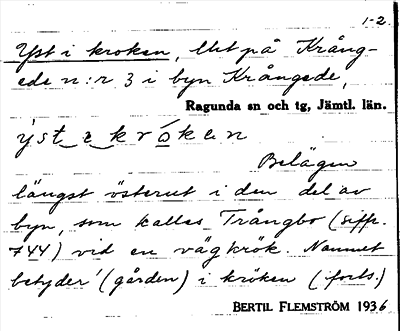 1-2.
Yst i kroken, lht på Krång-
ede n:r 3 i byn Krångede,
Ragunda sn och tg, Jämtl. län.
ýst i krόken
Belägen
längst österut i den del av
byn, som kallas Trångbo (siffr.
744) vid en vägkrök. Namnet
betyder '(gården) i kröken (forts.)
BERTIL FLEMSTRÖM 1936